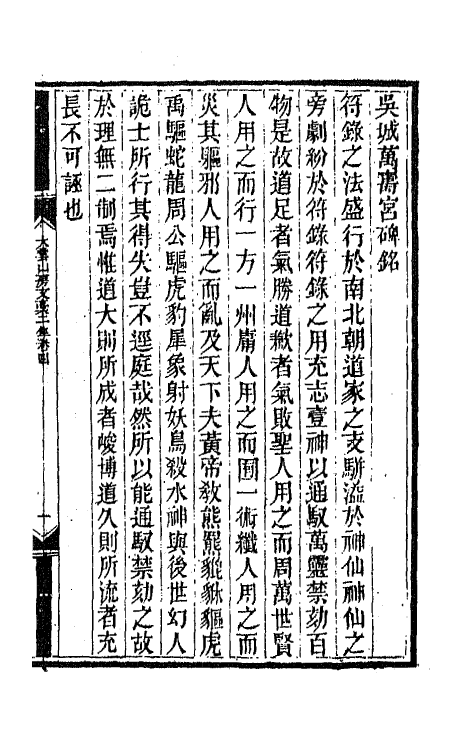 吳城萬壽宮碑銘
符籙之法盛行於南北朝道家之支駢溢於神仙神仙之
旁劇紛於符籙符籙之用充志壹神以通馭萬靈禁劾百
物是故道足者氣勝道歉者氣敗聖人用之而周萬世賢
人用之而行一方一州庸人用之而囿一術纖人用之而
災其軀邪人用之而亂及天下夫黃帝教熊羆貔貅貙虎
禹驅蛇龍周公驅虎豹犀象射妖鳥殺水神與後世幻人
詭士所行其得失豈不逕庭哉然所以能通馭禁劾之故
於理無二制焉惟道大則所成者峻博道久則所流者充
長不可誣也
大雲山房文稾二集卷四
一